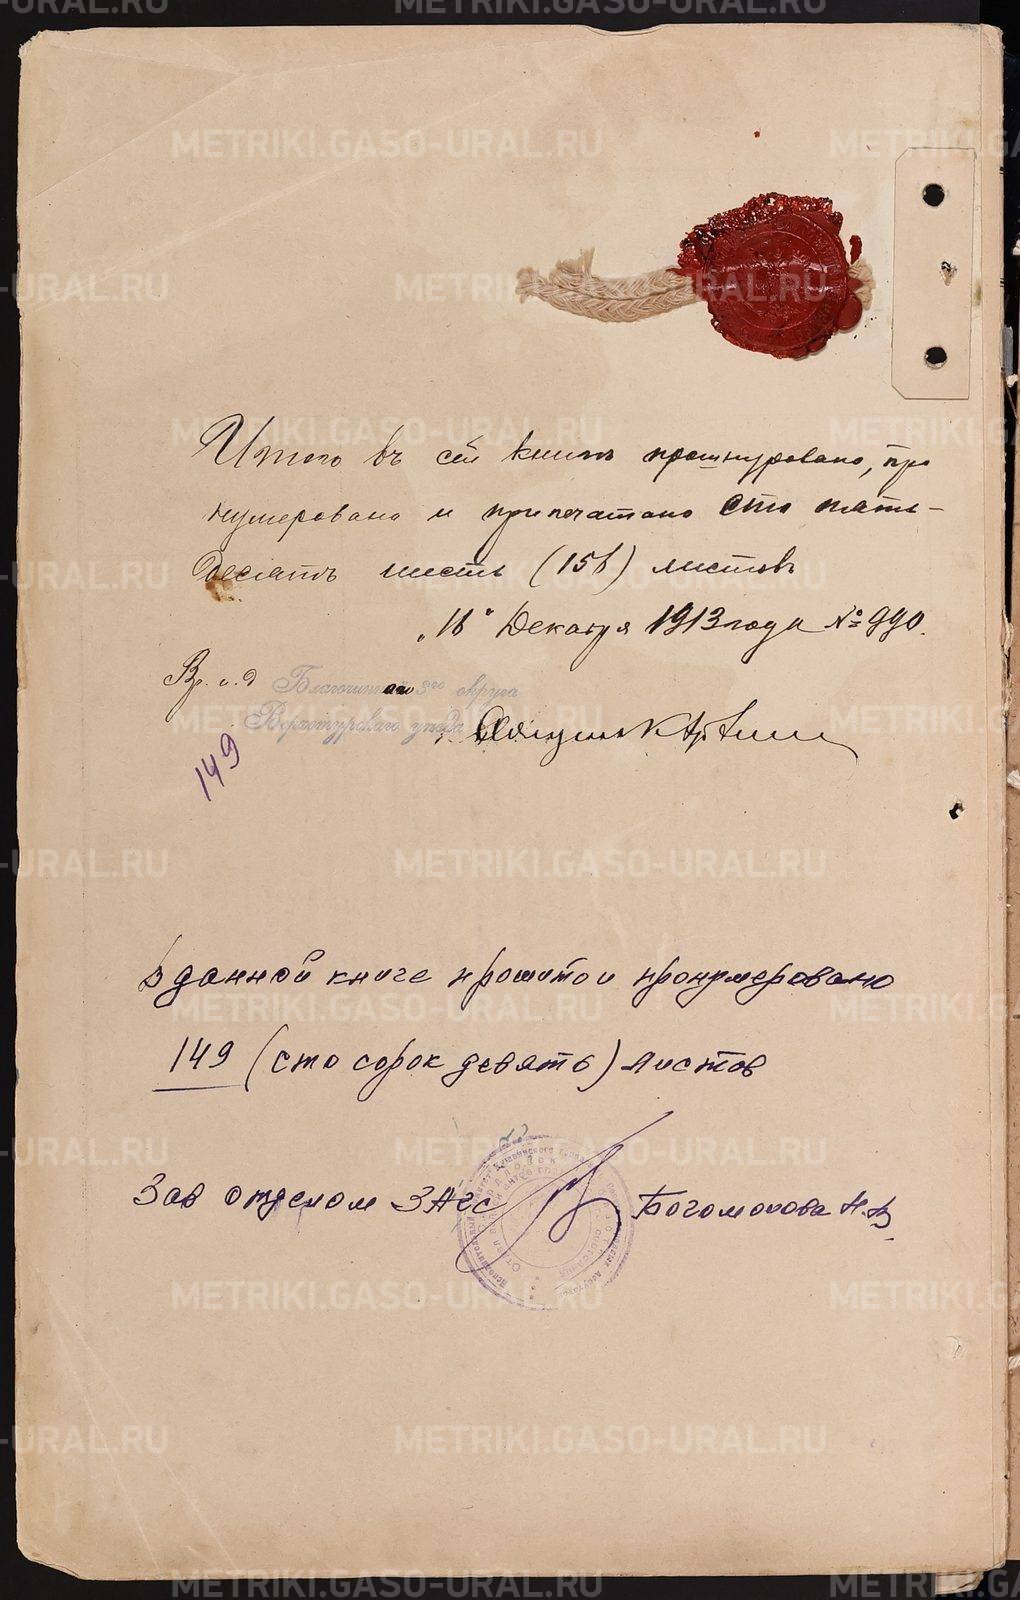 Итого въ сей книгѣ прошнуровано, про
нумеровано и припечатано сто пять-
десятъ шесть (156) листовъ
„16" Декабря 1913 года № 990.
Вр. и. д Благочиннаго 3го округа
Верхотурскаго уезда
149
В данной книге прошито и пронумеровано
149 (сто сорок девять) листов
Зав отделом ЗАГС Богомолова Н.В.
METRIKI.GASO-URAL.RU